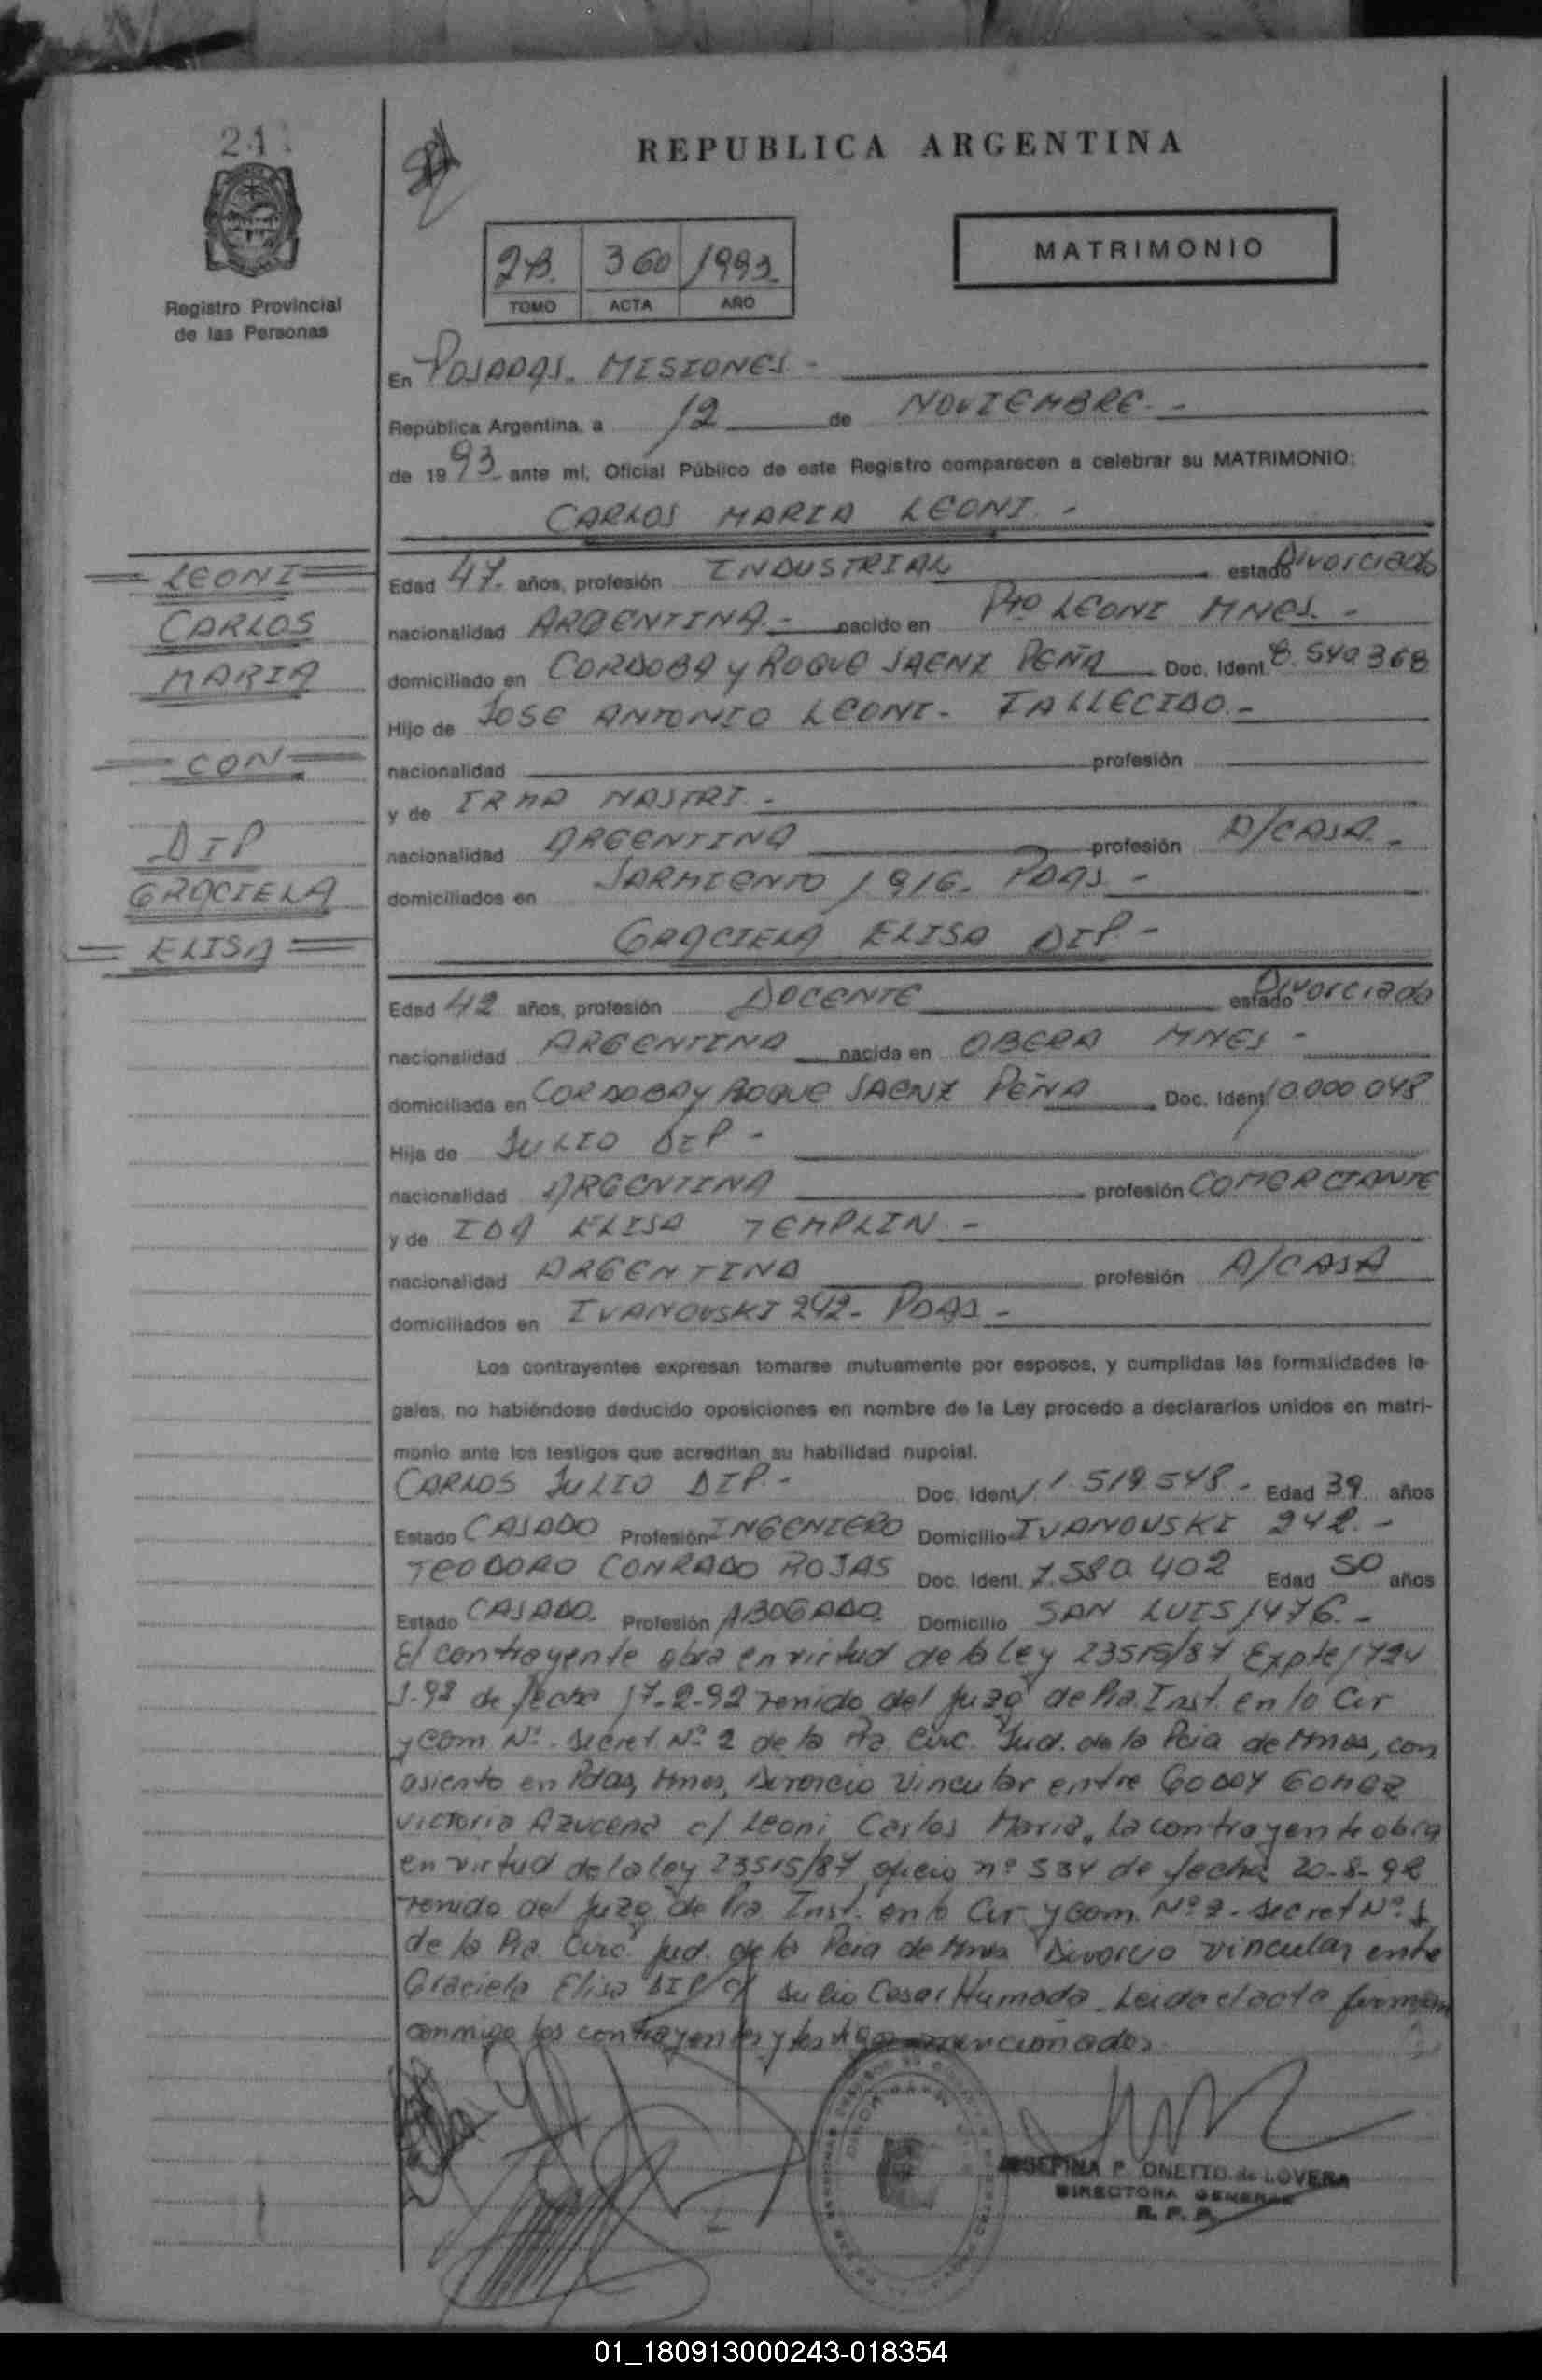 24
REPUBLICA ARGENTINA
MATRIMONIO
2B. 360 1993
TOMO ACTA AÑO
Registro Provincial
de las Personas
En POSADAS. MISIONES -
República Argentina, a 12 de NOVIEMBRE. -
de 1993 ante mí, Oficial Público de este Registro comparecen a celebrar su MATRIMONIO:
CARLOS MARIA LEONI. -
LEONI
CARLOS
MARIA
CON
DIP
GRACIELA
ELISA
Edad 47. años, profesión INDUSTRIAL estado Divorciado
nacionalidad ARGENTINA. - nacido en Pto LEONI MNES. -
domiciliado en CORDOBA y ROQUE SAENZ PEÑA Doc. Ident. 8.540.368
Hijo de JOSE ANTONIO LEONI - FALLECIDO. -
nacionalidad profesión
y de IRMA NASTRI. -
nacionalidad ARGENTINA profesión A/CASA. -
domiciliados en SARMIENTO 1916. PDAS -
GRACIELA ELISA DIP -
Edad 42 años, profesión DOCENTE estado Divorciado
nacionalidad ARGENTINA nacida en OBERA MNES -
domiciliada en CORDOBA y ROQUE SAENZ PEÑA Doc. Ident. 10.000.048
Hija de JULIO DIP -
nacionalidad ARGENTINA profesión COMERCIANTE
y de IDA ELISA TEMPLIN. -
nacionalidad ARGENTINA profesión A/CASA
domiciliados en IVANOVSKI 242. PDAS -
Los contrayentes expresan tomarse mutuamente por esposos, y cumplidas las formalidades le-
gales, no habiéndose deducido oposiciones en nombre de la Ley procedo a declararlos unidos en matri-
monio ante los testigos que acreditan su habilidad nupcial.
CARLOS JULIO DIP. - Doc. Ident. 11.519.548 - Edad 39 años
Estado CASADO Profesión INGENIERO Domicilio IVANOVSKI 242. -
TEODORO CONRADO ROJAS Doc. Ident. 7.580.402 Edad 50 años
Estado CASADO. Profesión ABOGADO Domicilio SAN LUIS 1476. -
El contrayente obra en virtud de la ley 23515/87 Expte 1724
de fecha 17-2-92 venido del Juzg de Pra. Inst. en lo Civ
y Com. Nº. Secret. Nº 2 de la Pra. Circ. Jud. de la Pcia de Mnes, con
asiento en Pdas, Mnes, Divorcio Vincular entre GODOY GOMEZ
Victoria Azucena c/ Leoni Carlos Maria. La contrayente obra
en virtud de la ley 23515/87 oficio nº 534 de fecha 20-8-92
venido del Juzg de Pra Inst. en lo Civ y Com. Nº 2 - Secret Nº 1
de la Pra. Circ. Jud. de la Pcia de Mnes Divorcio vincular ente
Graciela Elisa DIP c/ Julio Cesar Humada. Leida el acta firman
conmigo los contrayentes y testigos mencionados
JOSEFINA P. ONETTO de LOVERA
DIRECTORA GENERAL
R. P. P.
01_180913000243-018354